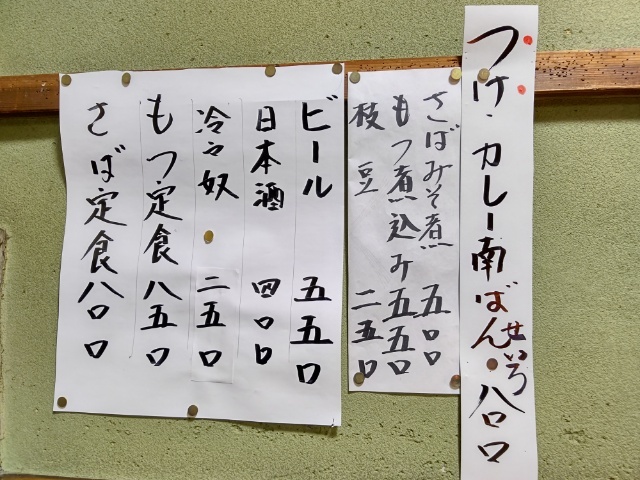 つけ・カレー南ばん 八〇〇
せいろ
さばみそ煮 五〇〇
もつ煮込み 五五〇
枝豆 二五〇
ビール 五五〇
日本酒 四〇〇
冷々奴 二五〇
もつ定食 八五〇
さば定食 八〇〇